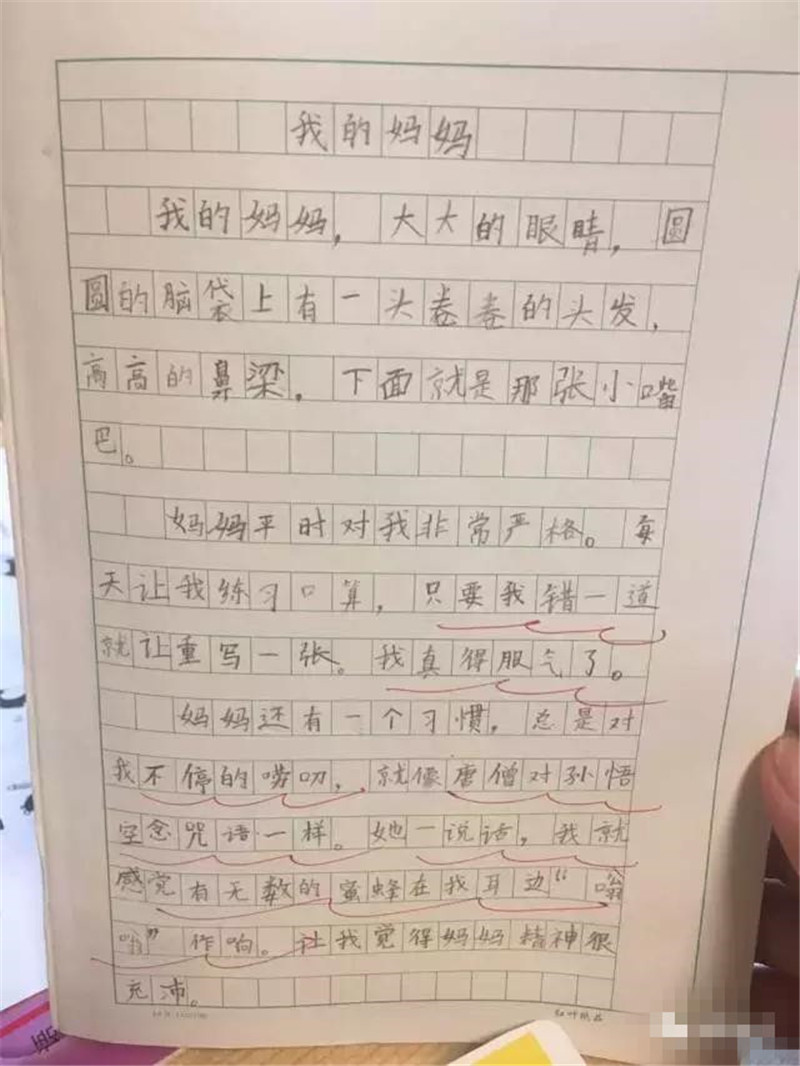 我的妈妈
我的妈妈，大大的眼睛，圆
圆的脑袋上有一头卷卷的头发，
高高的鼻梁。下面就是那张小嘴
巴。
妈妈平时对我非常严格。每
天让我练习口算，只要我错一道
就让重写一张。我真得服气了。
妈妈还有一个习惯，总是对
我不停的唠叨，就像唐僧对孙悟
空念咒语一样。她一说话，我就
感觉有无数的蜜蜂在我耳边“嗡
嗡”作响。让我觉得妈妈精神很
充沛。